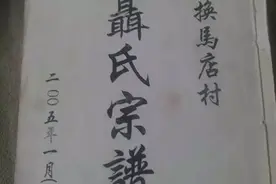 换馬店村
聶氏宗譜
二〇〇五年一月(